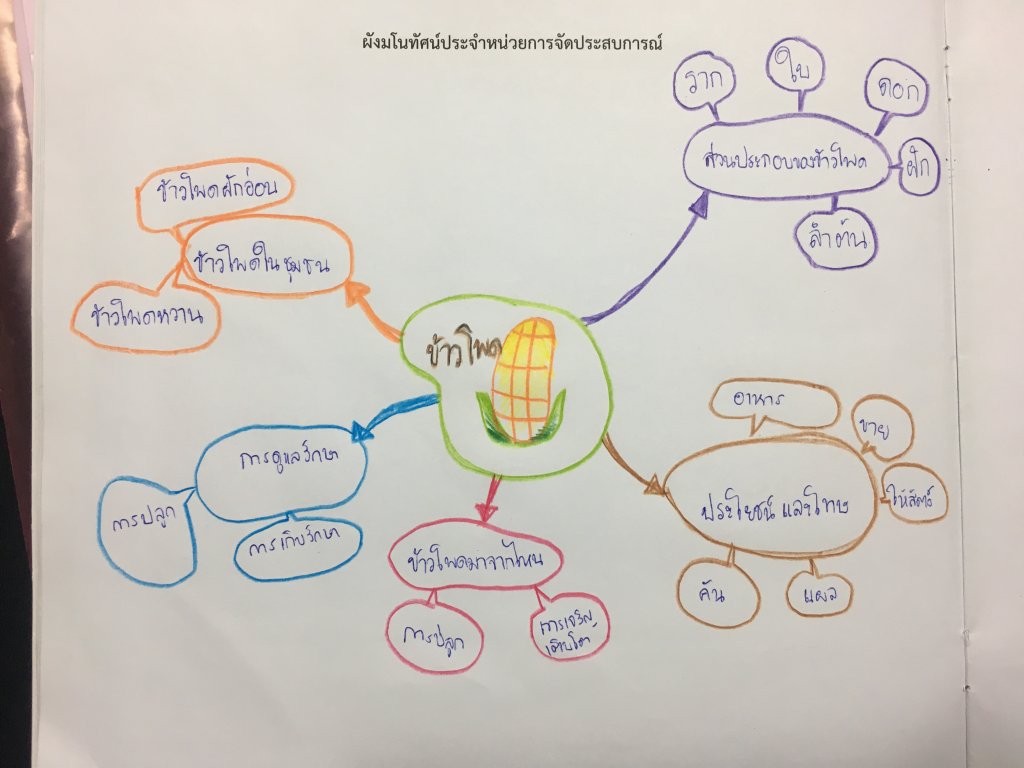 ผังมโนทัศน์ประจำหน่วยการจัดประสบการณ์
ราก
ใบ
ดอก
ส่วนประกอบของข้าวโพด
ฝัก
ลำต้น
ข้าวโพดฝักอ่อน
ข้าวโพดในชุมชน
ข้าวโพดหวาน
ข้าวโพด
อาหาร
ขาย
ให้สัตว์
ประโยชน์ และโทษ
คัน
แผล
การดูแลรักษา
การปลูก
การเก็บรักษา
ข้าวโพดมาจากไหน
การปลูก
การเจริญ
เติบโต